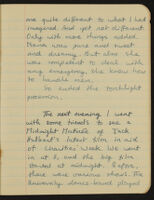 one quite different to what I had
imagined. And yet not different.
Only with more things added.
Mama was pure and sweet
and dreamy. But also she
was competent to deal with
any emergency, she knew how
to handle men.
So ended the torchlight
procession.
The next evening I went
with some friends to see a
Midnight Matinée of Jack
Hulbert's latest film in aid
of Charities' Week. We went
in at 9, and the big film
started at midnight. Before,
there were various shows. The
University dance-band played